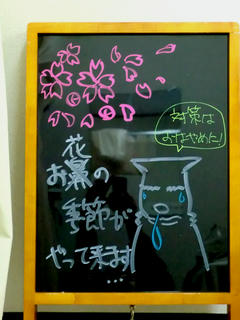 花
お鼻の
季節が
やって来ます
...
対策は
おはやめに!